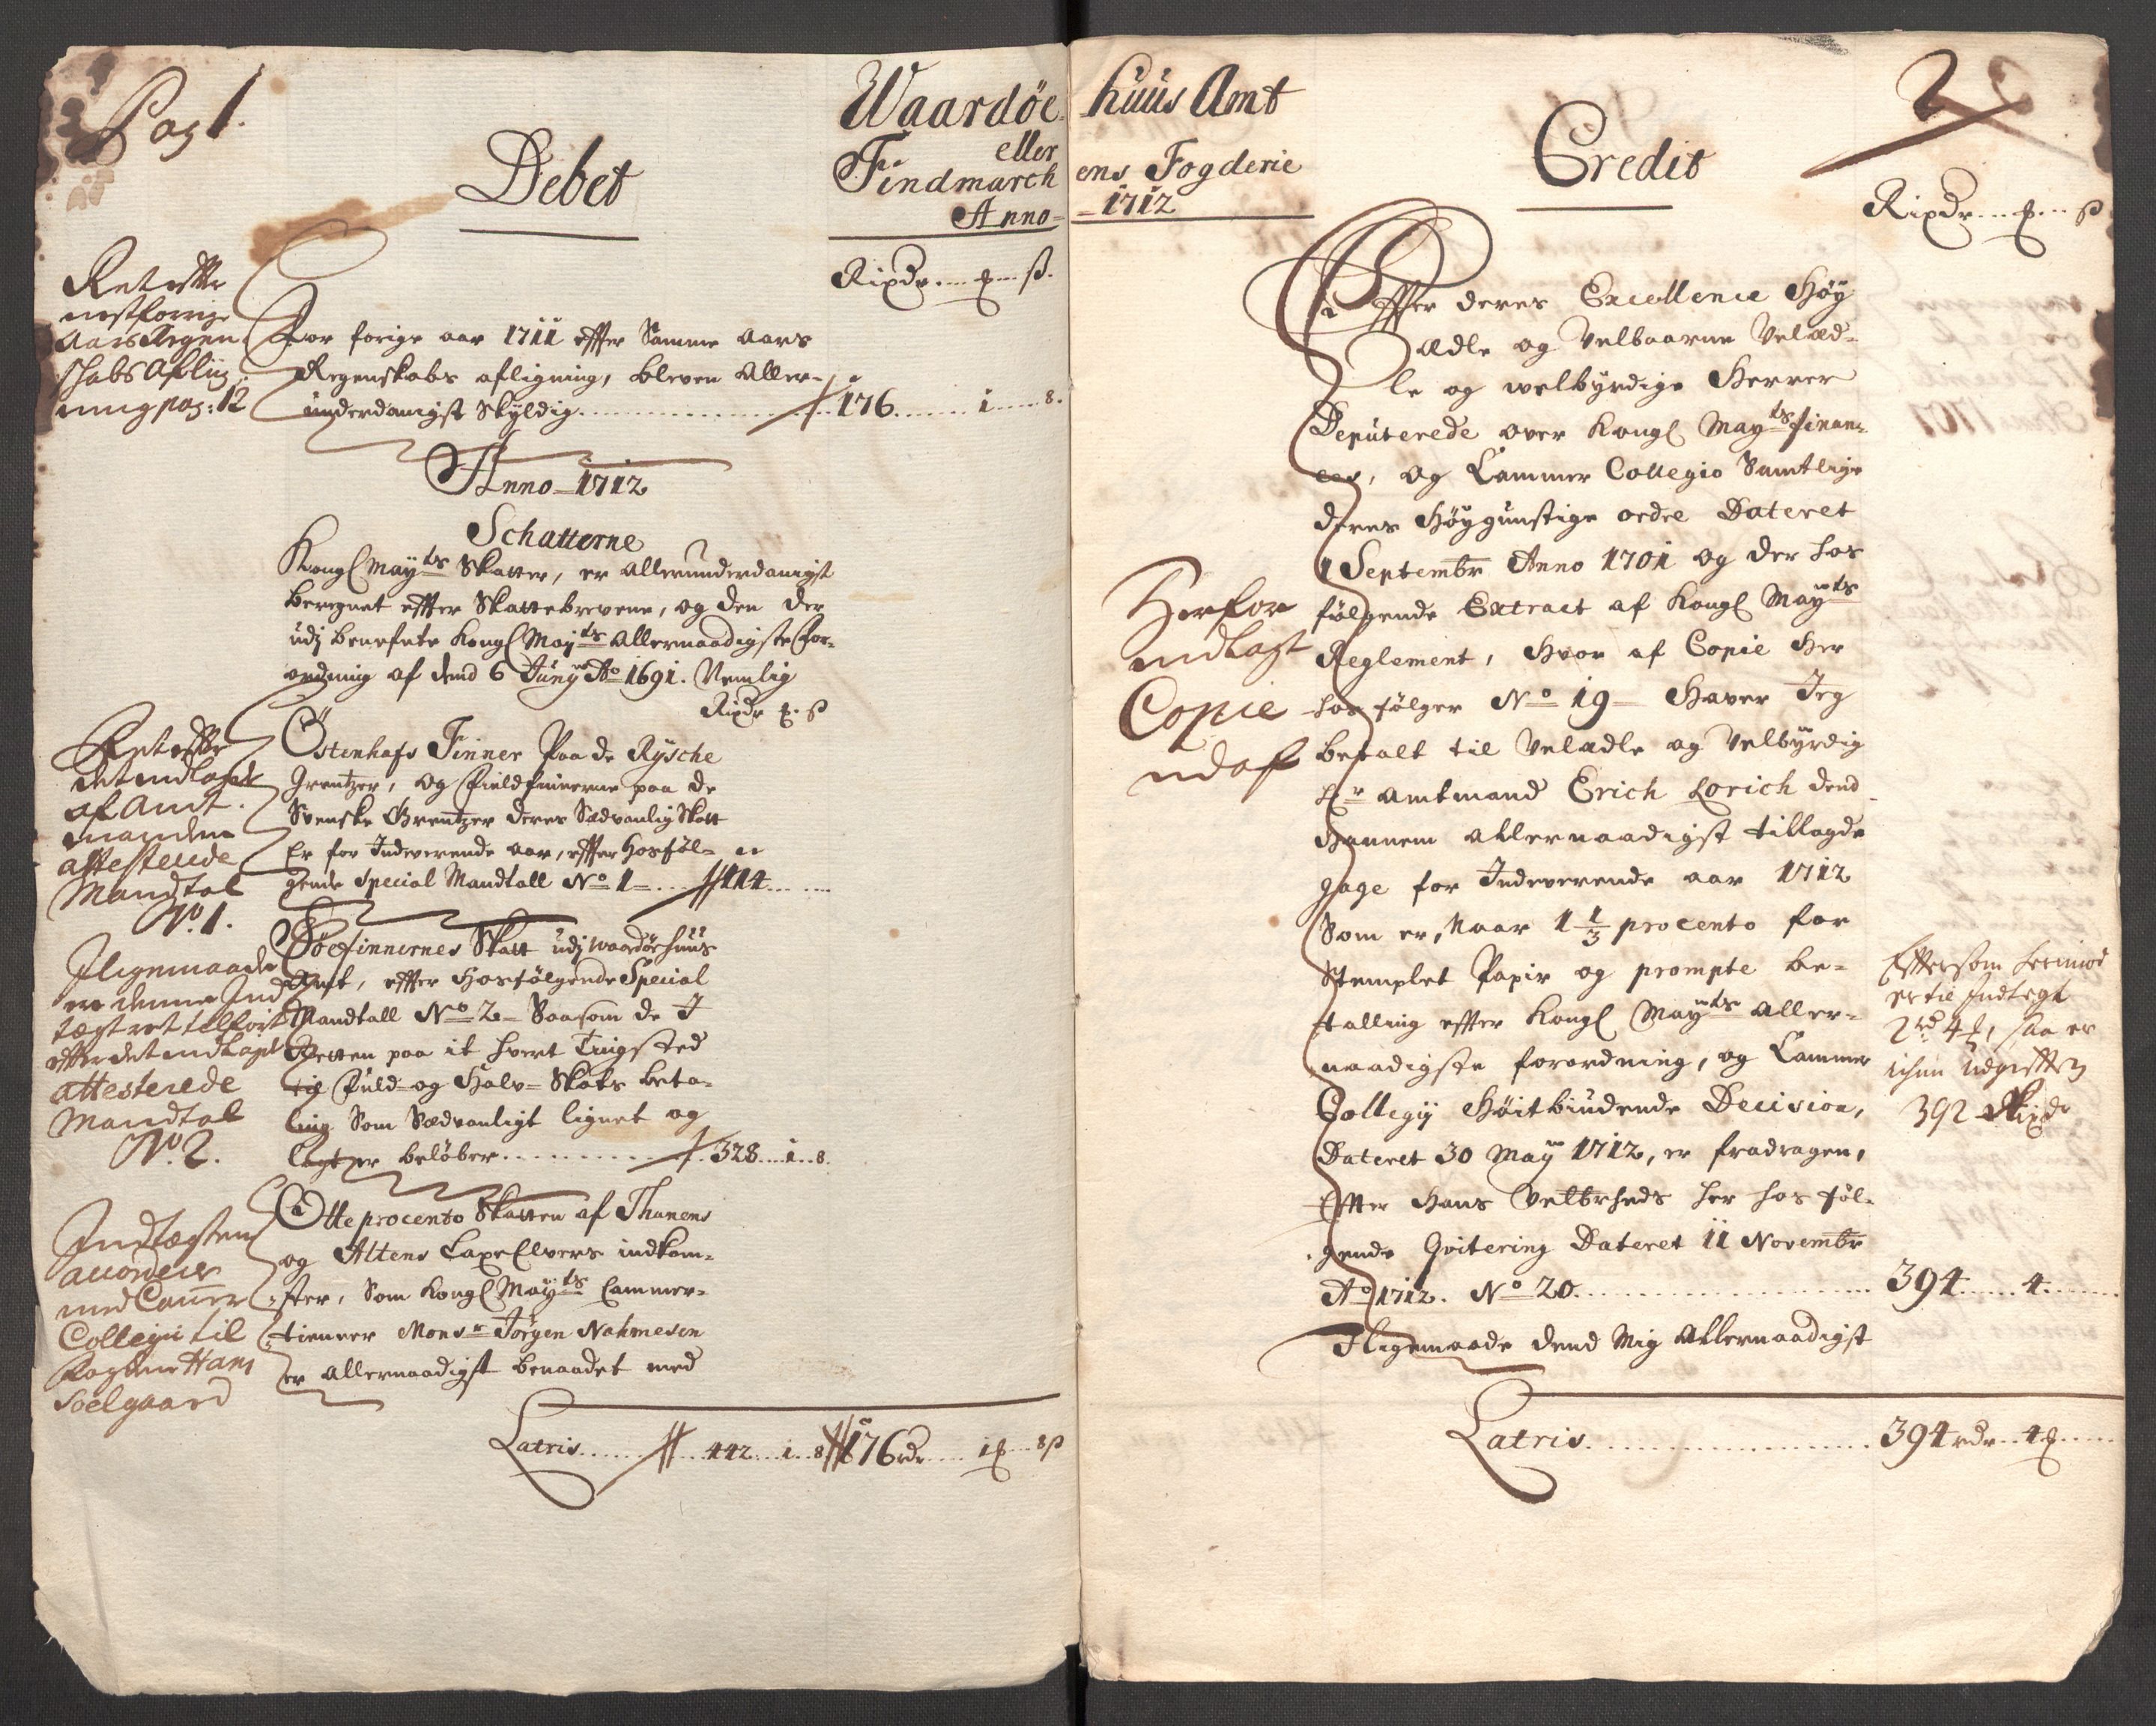 Pag 1.
Debet
Waardøe
eller
Findmarch
Anno=
Rixdr. ... ß.
Ret efter
nestforrige
Aars Regen
schabs Aflig
ning pag: 12
For forige aar 1711 effter Samme aars
Regenskabs afligning, bleven Aller-
underdanigst Skyldig ........ 176 ..... 1 .... 8.
Anno 1712
Schatterne
Kongl Mayts Skatter, er allerunderdanigst
beregnet effter Skattebrevene, og den der
udj benefnte Kongl Mayts Allernaadigste For-
ordning af dend 6 Juny Ao 1691. Nemlig
Rixdr ß
Ret efter
det indlagde
af Amt.
manden
attesterede
Mandtal
No. 1.
Østenhafs Finner paa de Rysche
Grentzer, og Fieldfinnerne paa de
Svenske Grentzer deres Sædvanlig Skatt
Er for Indeverende aar, effter Hosføl-
gende Special Mandtall No 1 .... 114 .....
Iligemaade
er denne Ind
tægt ret tilført
efter det indlagde
attesterede
Mandtal
No. 2.
Søefinnernes Skatt udj Waardøehuus
Amt, effter Hosfølgende Special
Mandtall No 2 Saasom de J
Retten paa it hvert Tingsted
til Fuld og Halv-Skats beta-
ling Som Sædvanligt lignet og
lagt er beløber ........ 328 ... 1 .. 8.
Indtægten
accorderer
med Cammer
Collegii til
Fogden Hans
Soelgaard
Otte procento Skatten af Thanens
og Altens Laxe Elvers indkom-
ster, Som Kongl Mayts Cammer-
tienner Monsr Jørgen Nahmesen
er allernaadigst benaadet med
Latris ...... 442 ... 1 .. 8 176 rdr .... 1 .... 8 ß
huus Amt
ens Fogderie
1712
Credit
2
Rixdr ... ß
Effter deres Excellence Høy
Ædle og Velbaarne Velæd-
le og welbyrdige Herrer
Deputerede over Kongl Mayts finan-
cer, og Cammer Collegio Samtlige
deres Høygunstige ordre Dateret
1 Septembr Anno 1701 og der hos
følgende Extract af Kongl Mayts
Reglement, Hvor af Copie Her
hos følger No 19 Haver Jeg
betalt til Velædle og Velbyrdig
Hr Amtmand Erich Lorich dend
Hannem allernaadigst tillagde
gage for Indeverende aar 1712
Som er, Naar 1 1/3 procento for
Stemplet Papir og prompte be-
talling effter Kongl Mayts Aller-
naadigste forordning, og Cammer
Collegij Høitbiudende Decision,
Dateret 30 May 1712, er fradragen,
Effter Hans Velbrheds her hos føl-
gende Qvitering Dateret 11 Novembr
Ao 1712. No 20 ........ 394 ..... 4 .....
Iligemaade dend Mig Allernaadigst
Herfor
indlagt
Copie
udaf
Eftersom herimod
er til Indtegt
2 rd 4, saa er
ichun udgifften
392 Rixdr
Latris ........ 394 rdr .. 4 ....